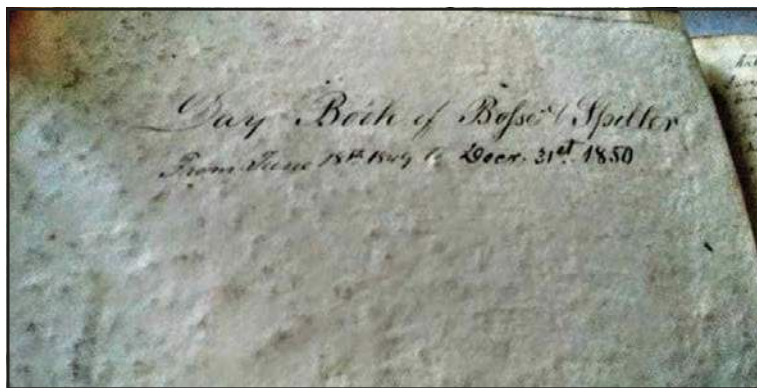 Day Book of Bosser & Spiller
From June 18th 1849 to Decr. 31st. 1850